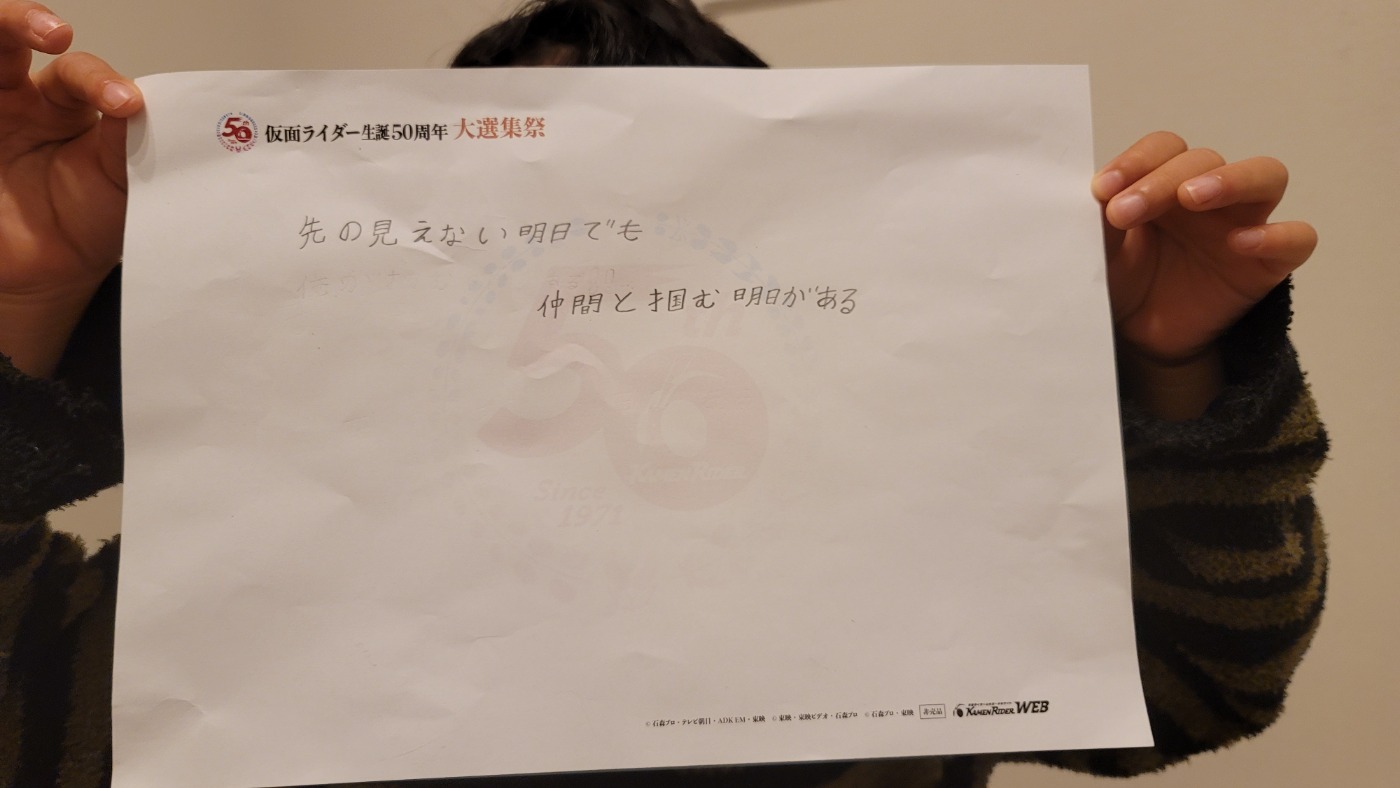 50
仮面ライダー生誕50周年 大選集祭
先の見えない明日でも
仲間と掴む明日がある
50th
KAMEN RIDER
Since
1971
© 石森プロ・テレビ朝日・ADK EM・東映 © 東映・東映ビデオ・石森プロ © 石森プロ・東映 非売品 KAMEN RIDER WEB